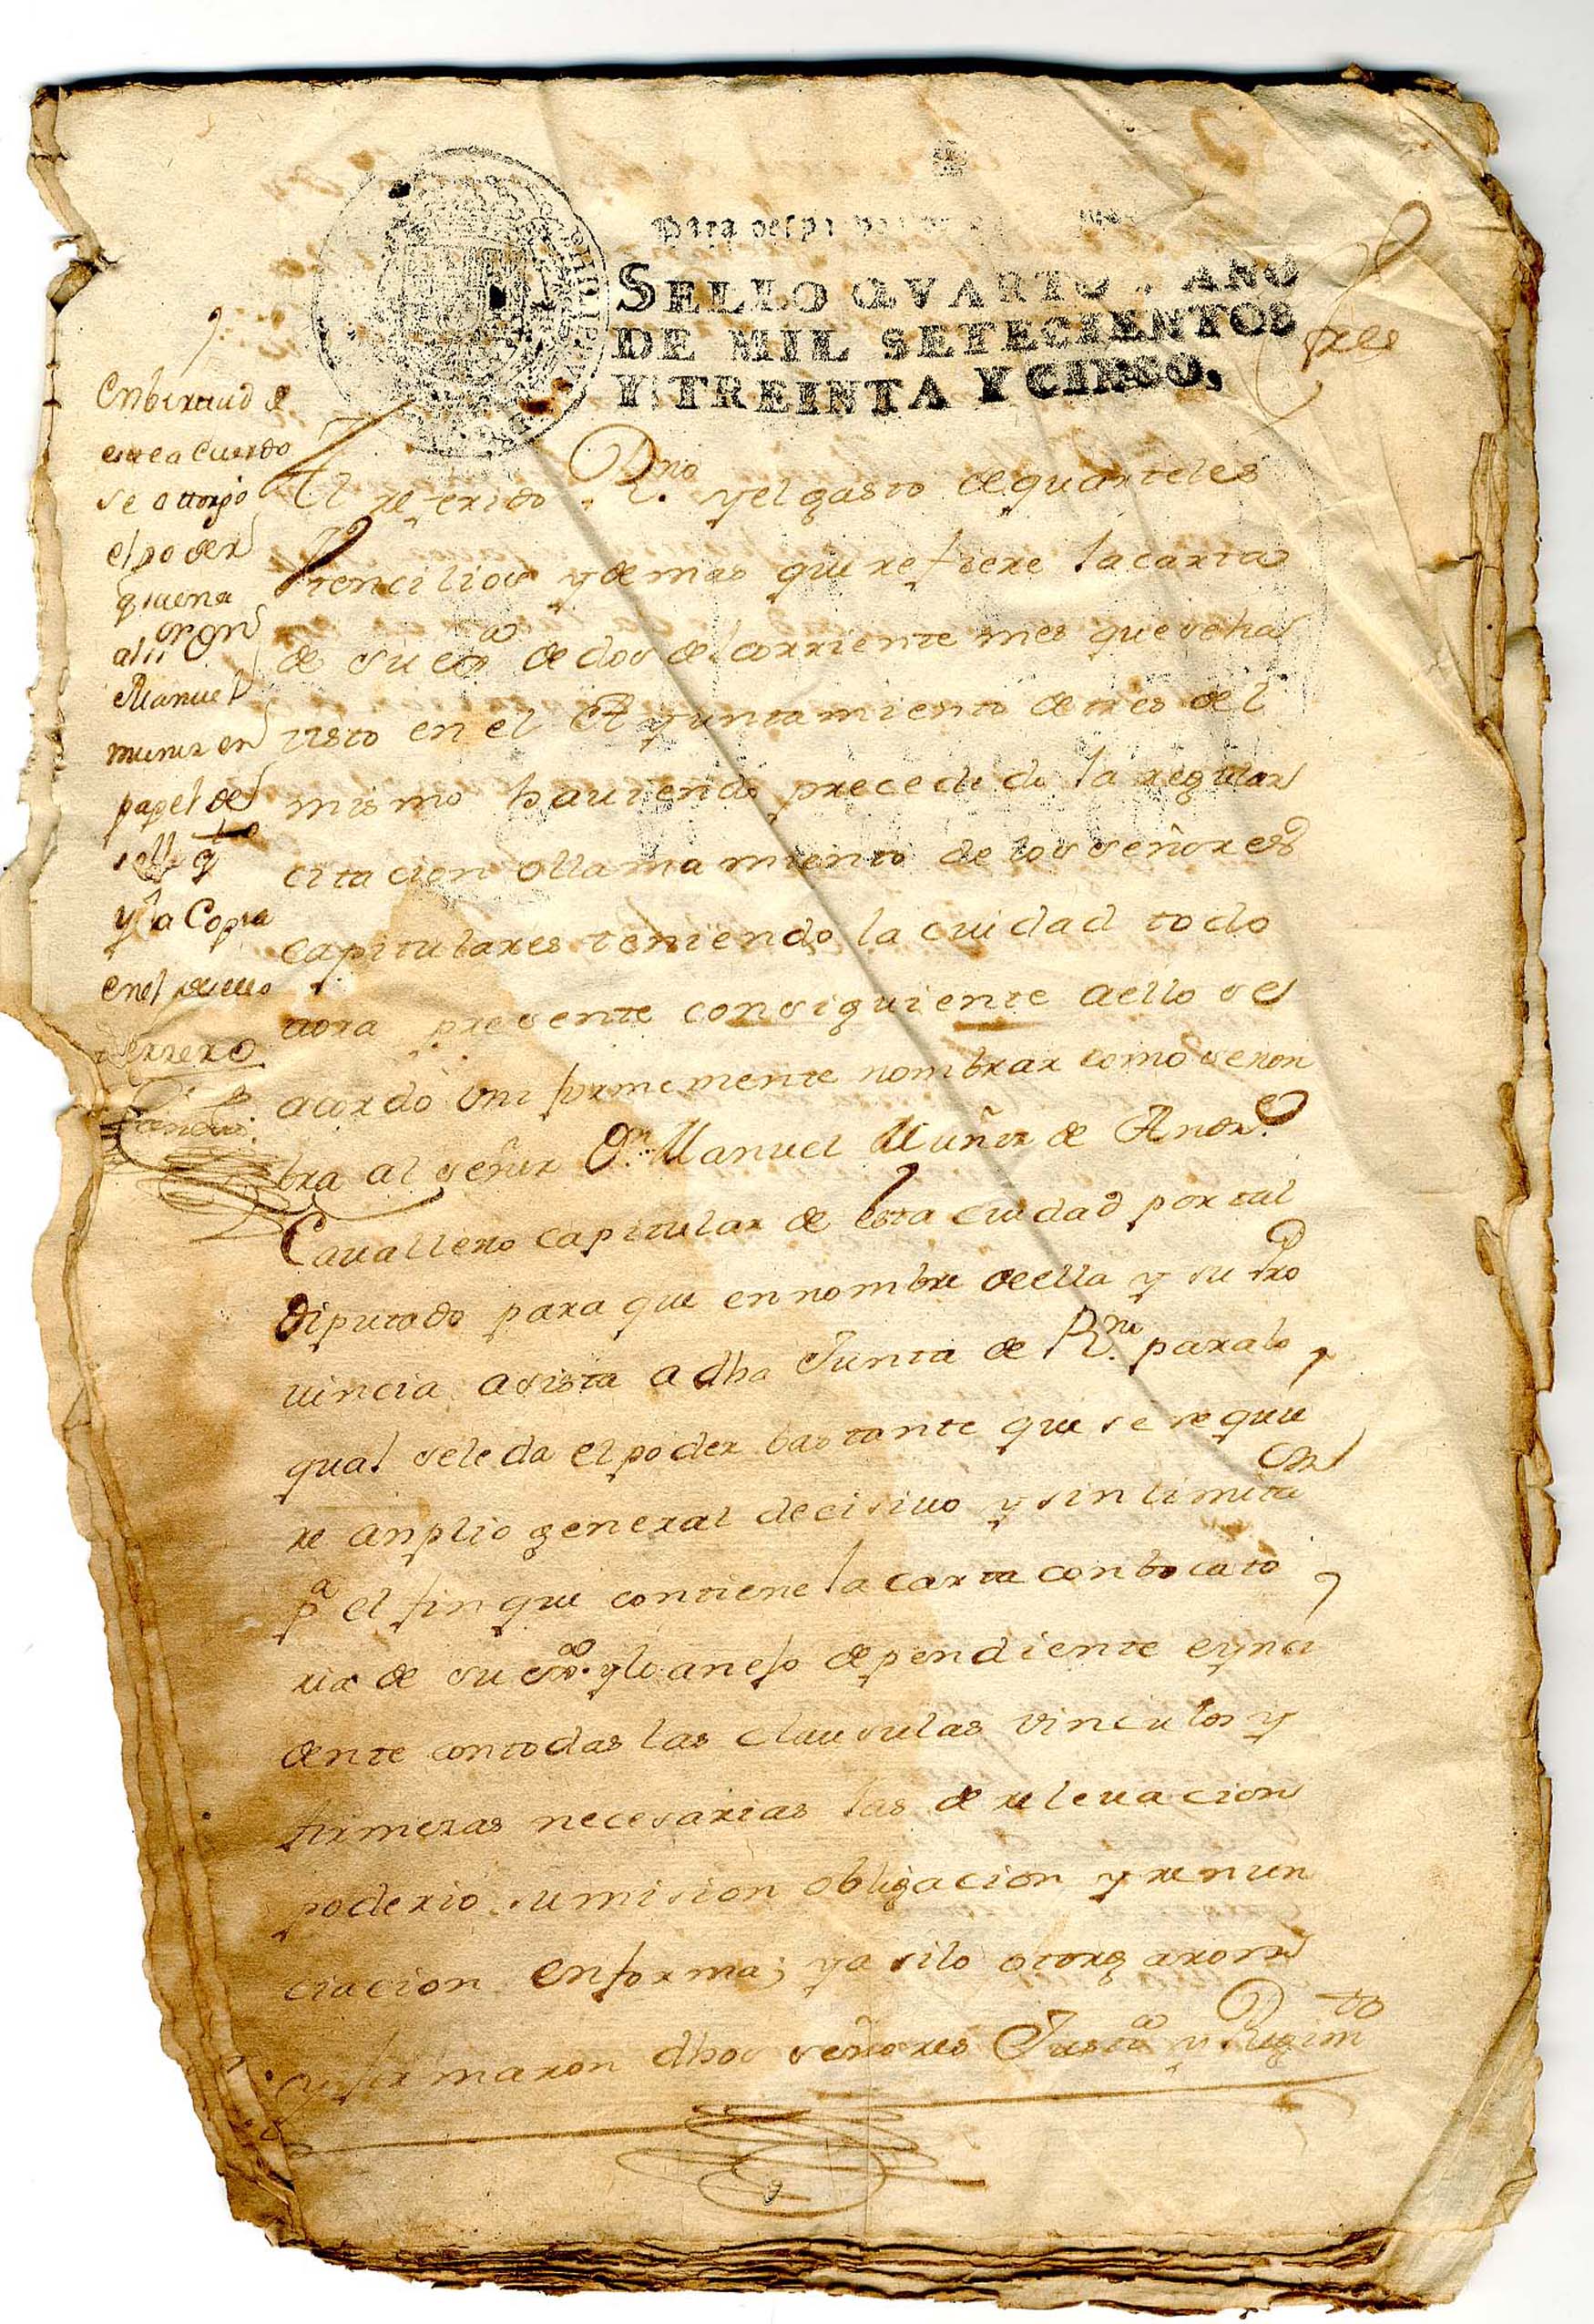 SELLO QVARTO, AÑO
DE MIL SETECIENTOS
Y TREINTA Y CINCO,
tres
En birtud de
este acuerdo
se ottorgo
el poder
orign
al
Manuel
muniz en
papel de
sello qto
y la Copia
en el
Herrero
El referido Rno y el gasto de quarteles
Utencilios y demas que refiere la carta
de su exa de dos del corriente mes que se ha
visto en el Ayuntamiento de tres del
mismo hauiendo precedido la regular
citacion o llamamiento de los señores
capitulares teniendo la ciudad todo
aora presente consiguiente a ello se
acordo vniformemente nombrar como se non
bra al señor Dn Manuel Muñiz de Andre
Cauallero capitular de esta ciudad por tal
Diputado para que en nombre de ella y su Pro
uincia asista a dha Junta de Rno para lo
qual se le da el poder bastante que se requie
re anplio general decisiuo y sin limita
on
pa el fin que contiene la carta conbocato
ria de su exa y lo anejo dependiente e ynci
dente con todas las clausulas vinculos y
firmezas necesarias las de releuacion
poderio sumision obligacion y renun
ciacion en forma; y asi lo otorgaron
y firmaron dhos señores Justa y Regimto